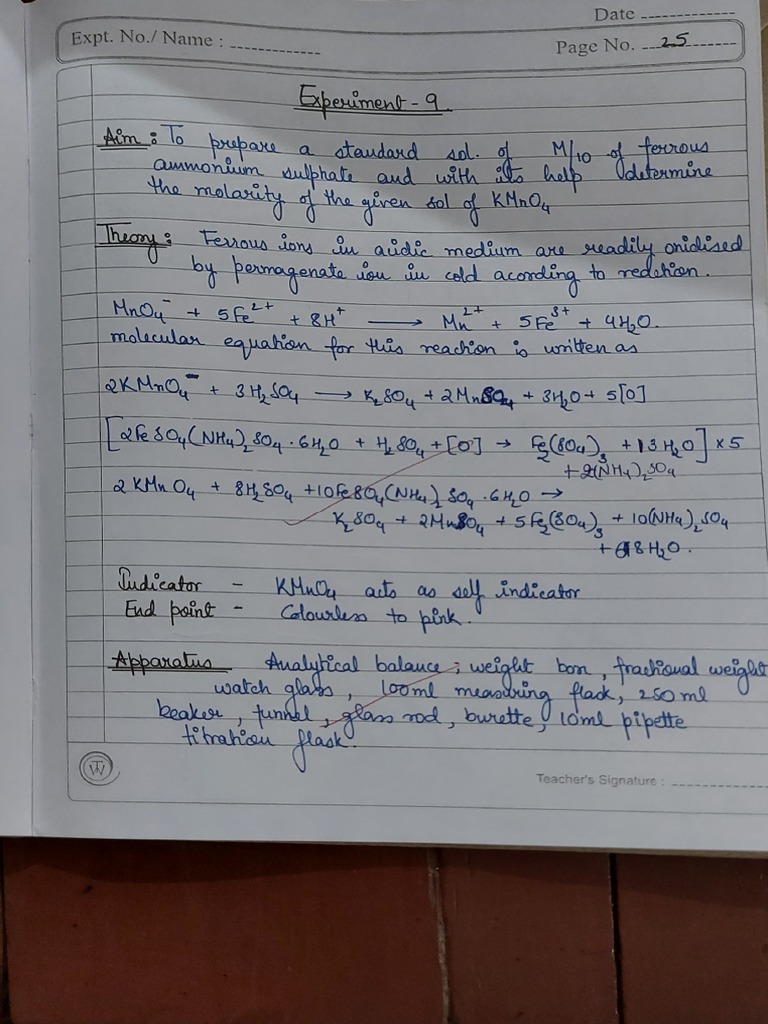 Date
Expt. No./ Name :
Page No. 25
Experiment - 9
Aim : To prepare a standard sol. of M/10 of ferrous
ammonium sulphate and with its help determine
the molarity of the given sol of KMnO4
Theory : Ferrous ions in acidic medium are readily onidised
by permagenate ion in cold acording to redction.
MnO4⁻ + 5Fe²⁺ + 8H⁺ → Mn²⁺ + 5Fe³⁺ + 4H2O.
molecular equation for this reaction is written as
2KMnO4⁻ + 3H2SO4 → K2SO4 + 2MnSO4 + 3H2O + 5[O]
[2FeSO4(NH4)2SO4·6H2O + H2SO4 + [O] → Fe2(SO4)3 + 13H2O] × 5
+ 2(NH4)2SO4
2KMnO4 + 8H2SO4 + 10FeSO4(NH4)2SO4·6H2O →
K2SO4 + 2MnSO4 + 5Fe2(SO4)3 + 10(NH4)2SO4
+ 68H2O.
Indicator - KMnO4 acts as self indicator
End point - Colourless to pink.
Apparatus Analytical balance ; weight bon, fractional weight
watch glass, 100ml measuring flack, 250 ml
beaker, funnel, glass rod, burette, 10ml pipette
titration flask.
Teacher's Signature :